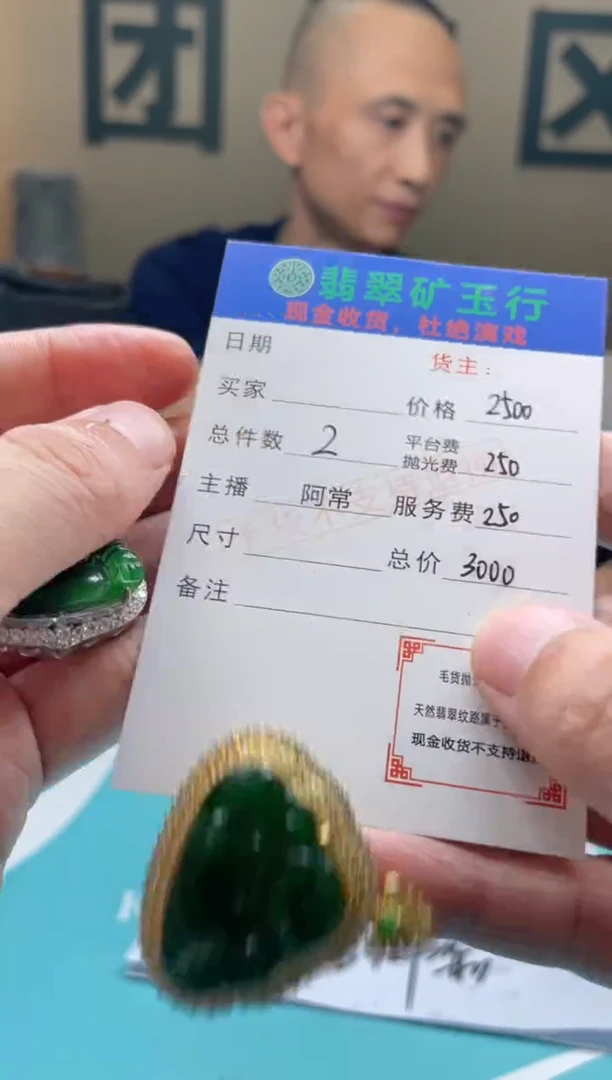 团 区
翡翠矿玉行
现金收货，杜绝演戏
日期
货主：
买家
价格 2500
总件数 2
平台费
抛光费 250
主播 阿常
服务费 250
尺寸
总价 3000
备注
毛货抛
天然翡翠纹路属于
现金收货不支持退